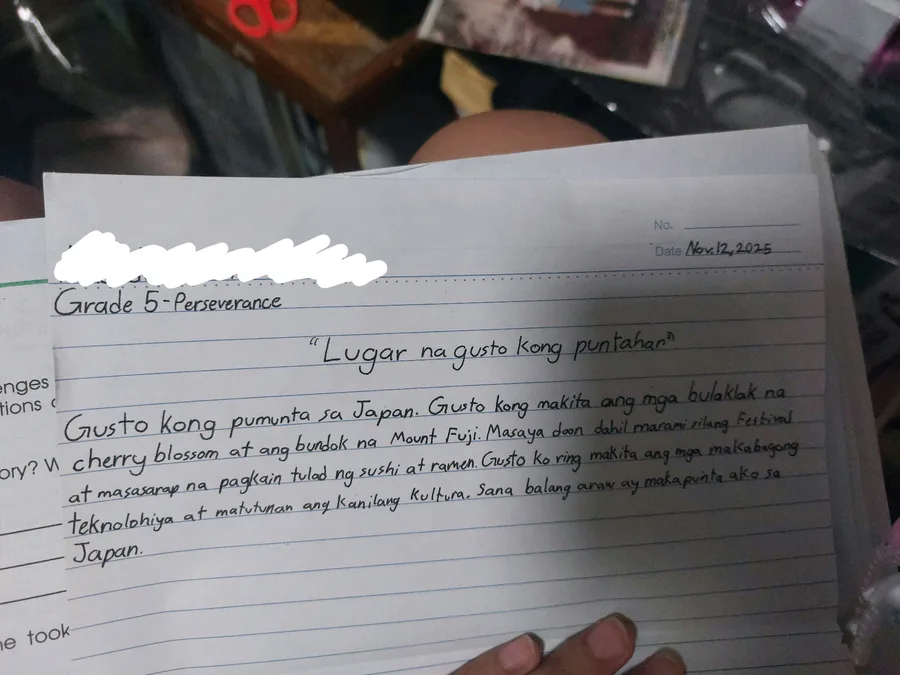 No.
Date Nov. 12, 2025
Grade 5 - Perseverance
"Lugar na gusto kong puntahan"
Gusto kong pumunta sa Japan. Gusto kong makita ang mga bulaklak na
cherry blossom at ang bundok na Mount Fuji. Masaya doon dahil marami silang Festival
at masasarap na pagkain tulad ng sushi at ramen. Gusto ko ring makita ang mga makabagong
teknolohiya at matutunan ang kanilang kultura. Sana balang araw ay makapunta ako sa
Japan.
enges
tions
ory? W
e took